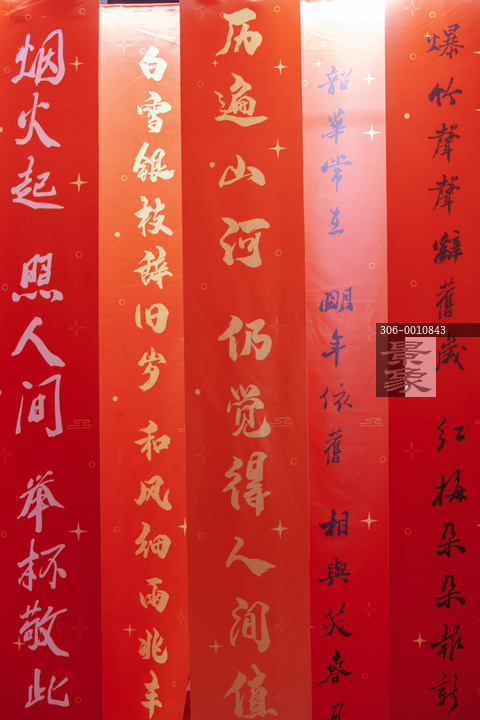 烟火起 照人间 举杯敬此
白雪银枝辞旧岁 和风细雨兆丰
历遍山河 仍觉得人间值
韶華常在 明年依舊 相與笑春風
爆竹聲聲辭舊歲 红梅朵朵報新
306-0010843
景象